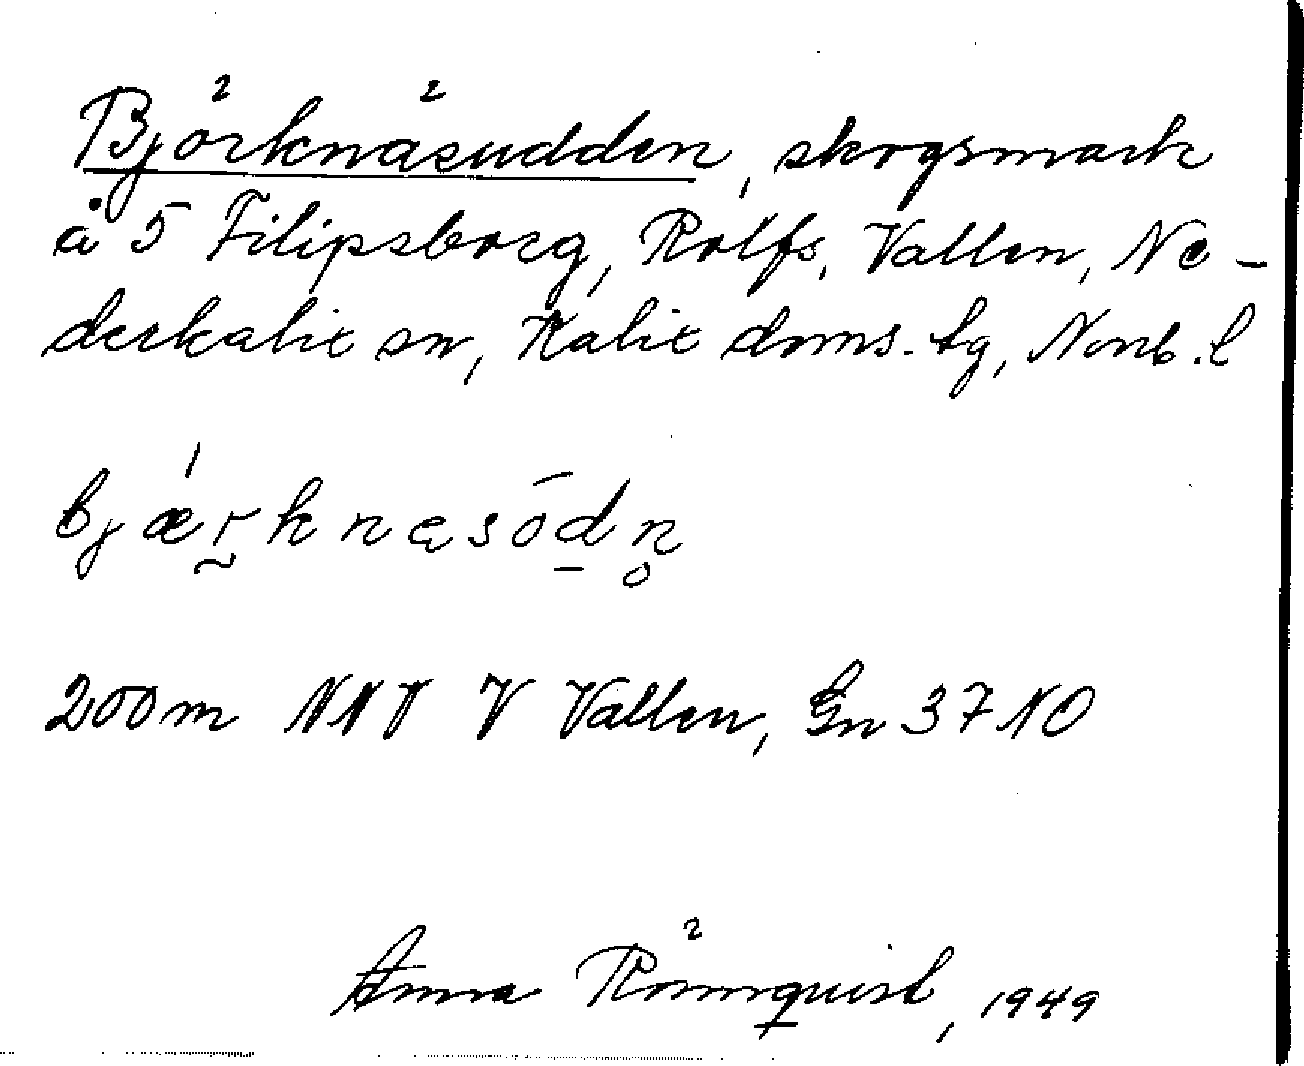 Björknäsudden, skogsmark
å 5 Filipsborg, Rolfs, Vallen, Ne-
derkalix sn, Kalix doms. tg, Norrb. l
bjærknęsōdn̥
200 m NNV V Vallen, Gn 37 NO
Anna Rönnquist, 1949